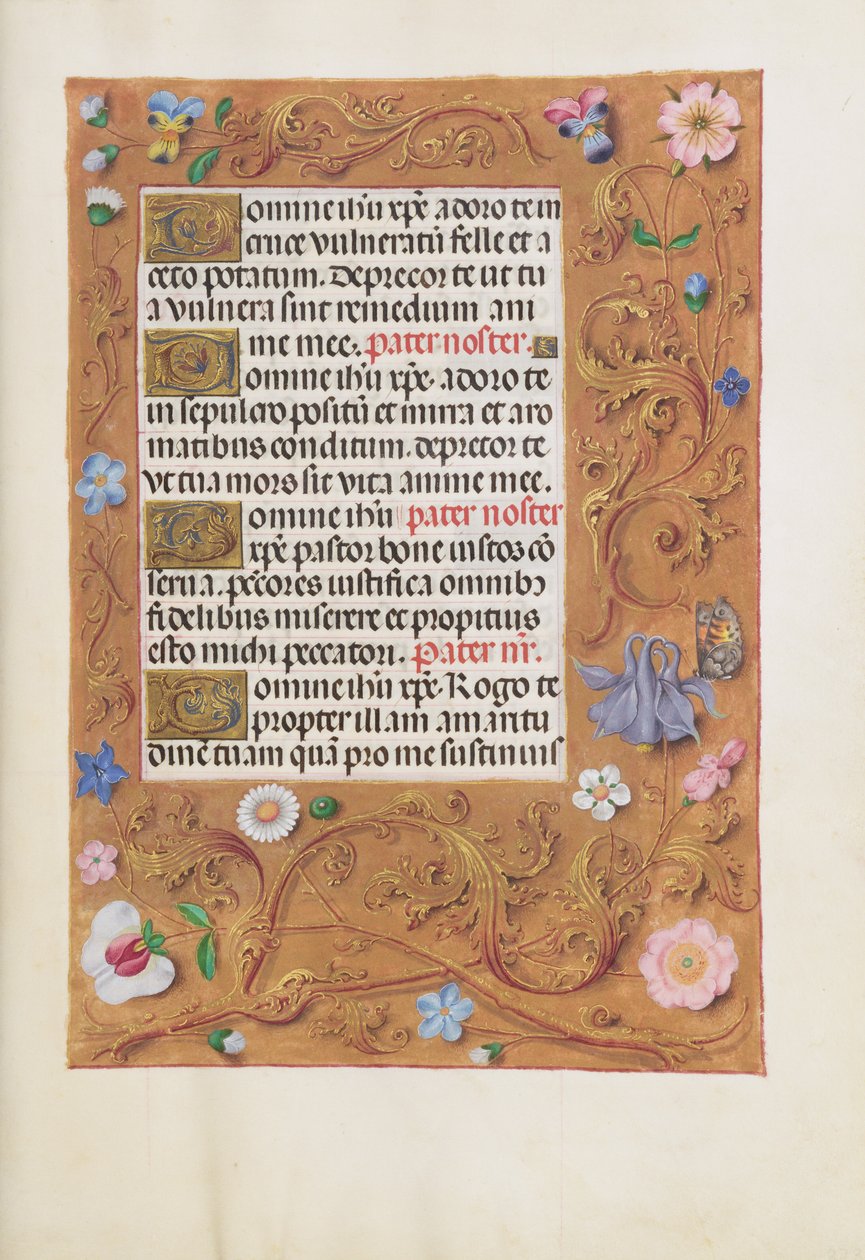 Domine ihū xp̄e adoro te in
cruce vulneratū felle et a
ceto potatum. Deprecor te ut tu
a vulnera sint remedium ani
me mee. pater noster.
Domine ihū xp̄e. adoro te
in sepulcro positū et mirra et aro
matibus conditum. deprecor te
vt tua mors sit vita anime mee.
Domine ihū pater noster
xp̄e pastor bone iustos cō
serua. pctōres iustifica omnibꝫ
fidelibus miserere et propitius
esto michi peccatori. Pater nr̄.
Domine ihū xp̄e. Rogo te
propter illam amaritu
dinē tuam quā pro me sustinuis